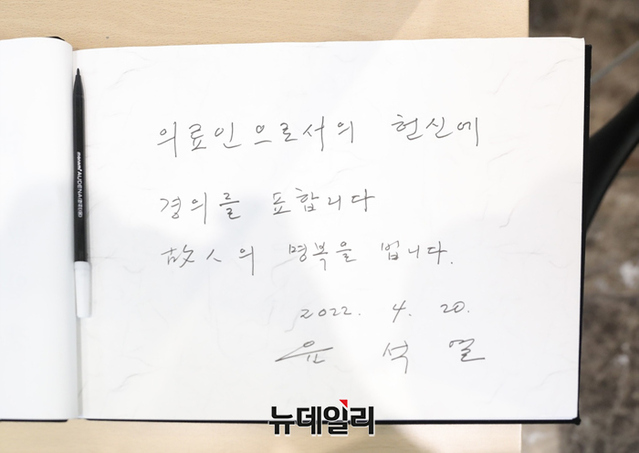 의료인으로서의 헌신에
경의를 표합니다
故人의 명복을 빕니다.
2022. 4. 20.
윤 석 열
뉴데일리